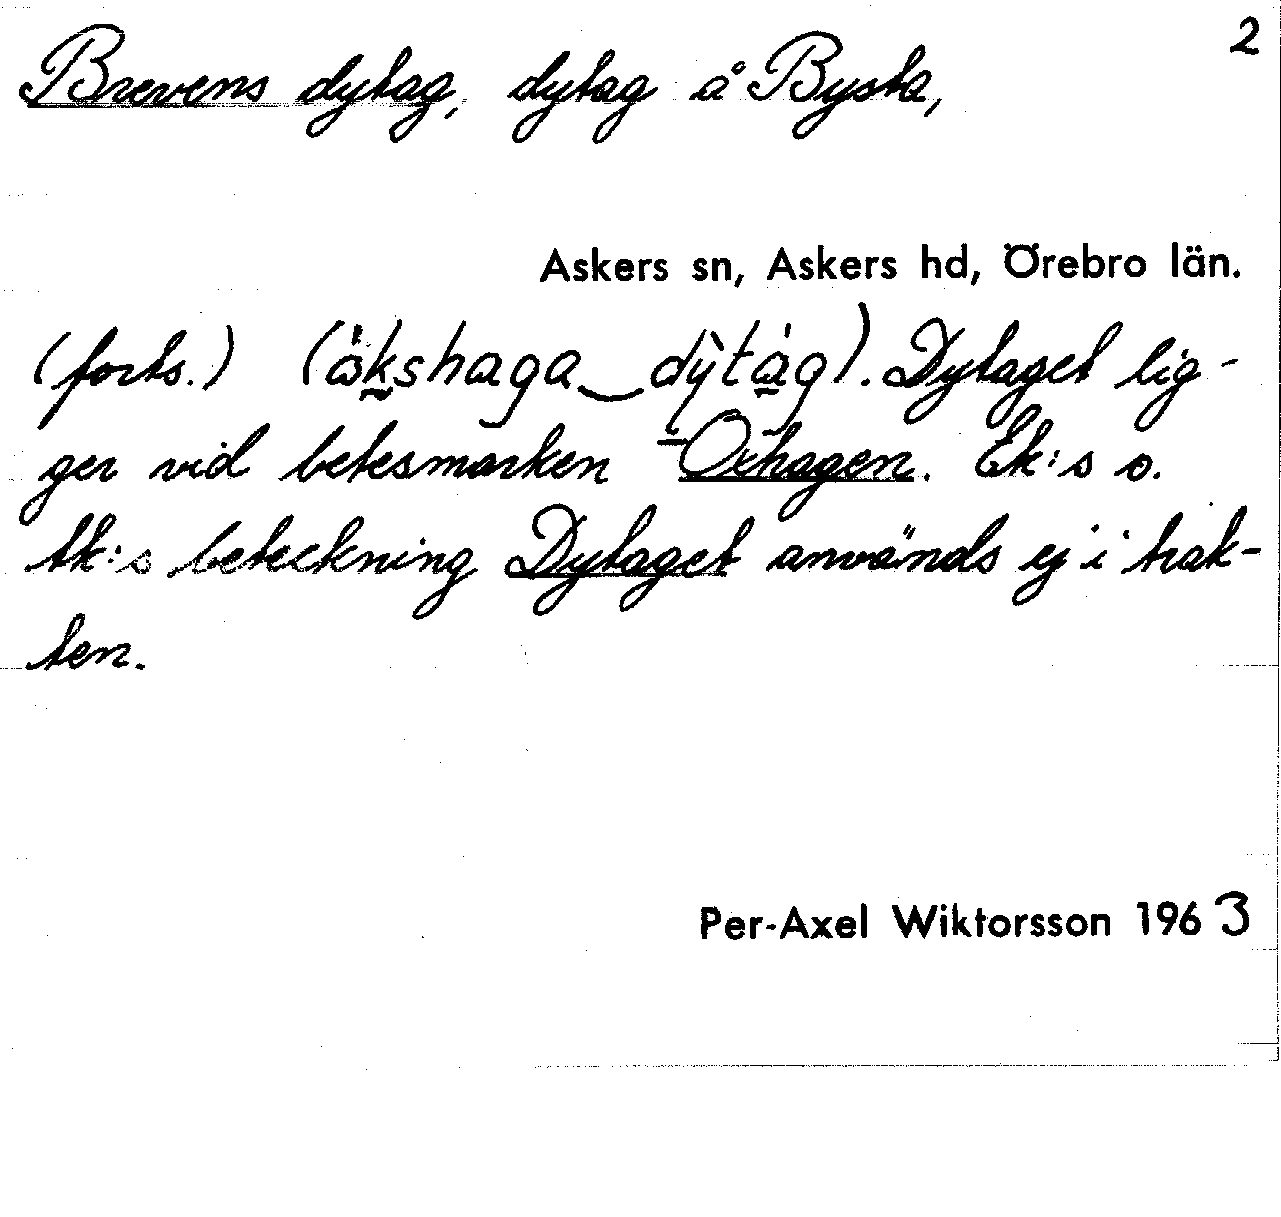 2
Brevens dytag, dytag å Bysta,
Askers sn, Askers hd, Örebro län.
(forts.) Dytaget lig-
ger vid betesmarken Oxhagen. Ek:s o.
tk:s beteckning Dytaget används ej i trak-
ten.
Per-Axel Wiktorsson 1963